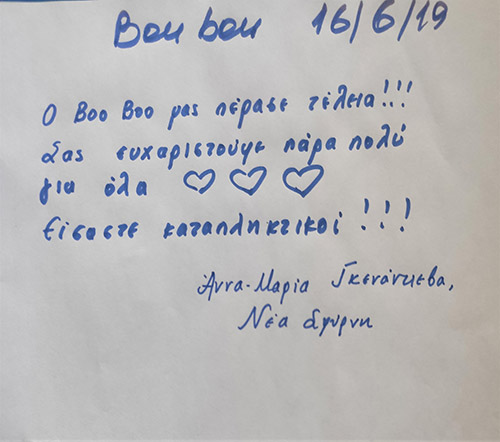 Bou bou 16/6/19
Ο Boo Boo μας πέρασε τέλεια!!!
Σας ευχαριστουμε πάρα πολύ
για όλα ♡ ♡ ♡
Είσαστε καταπληκτικοί !!!
Άννα-Μαρία Γκενάντιεβα,
Νέα Σμύρνη